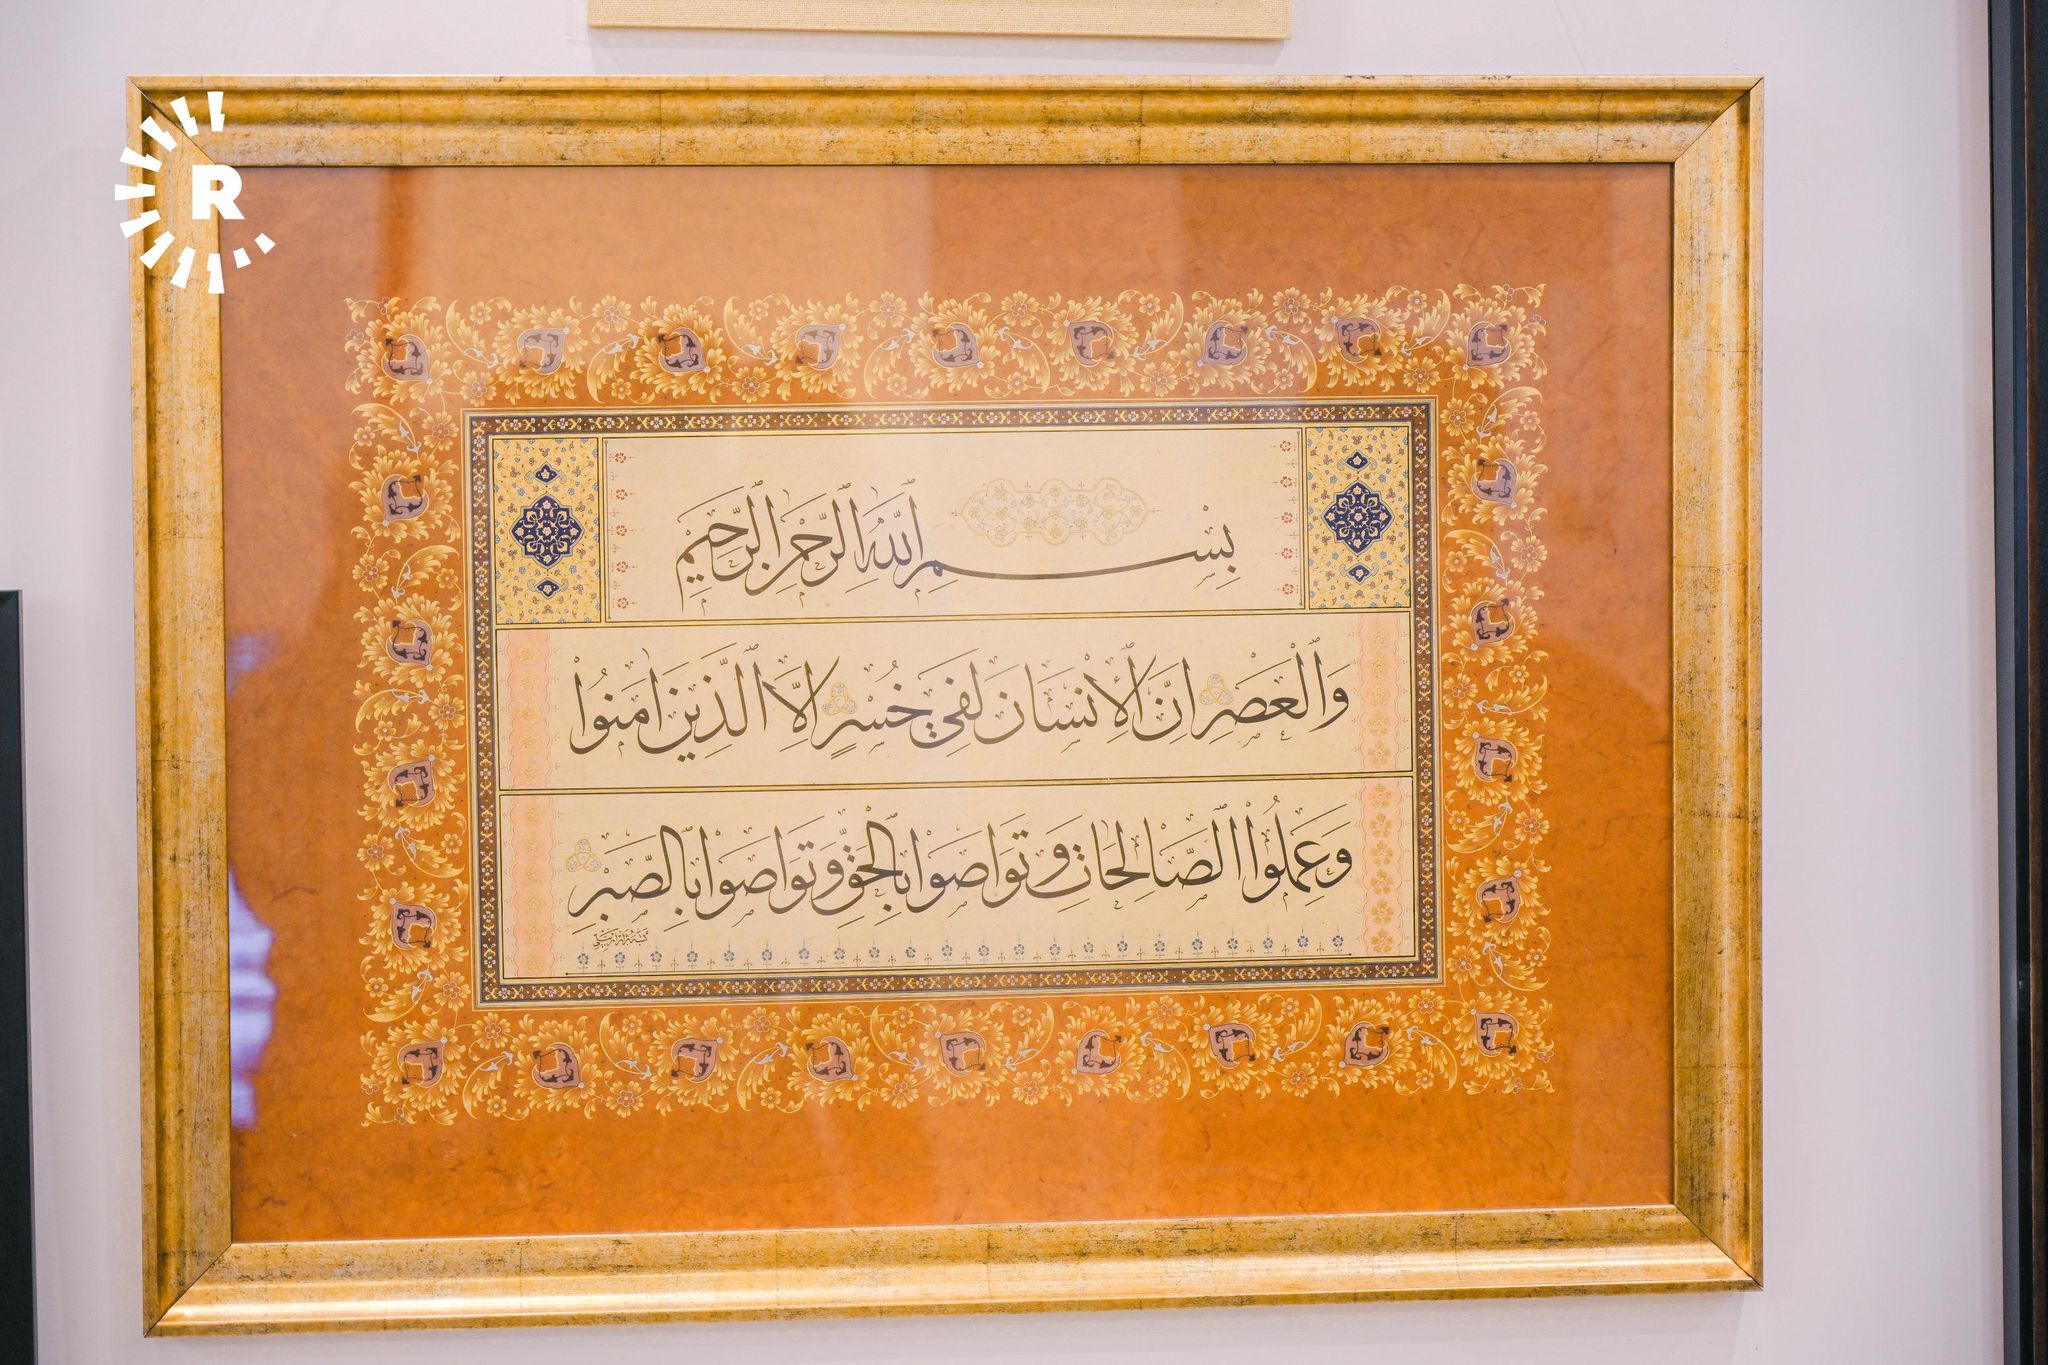 R
بِسْمِ ٱللَّهِ ٱلرَّحْمٰنِ ٱلرَّحِيمِ
وَٱلْعَصْرِ اِنَّ ٱلْاِنْسَانَ لَفِي خُسْرٍ اِلَّا ٱلَّذِينَ اٰمَنُوا
وَعَمِلُوا ٱلصَّالِحَاتِ وَتَوَاصَوْا بِٱلْحَقِّ وَتَوَاصَوْا بِٱلصَّبْرِ